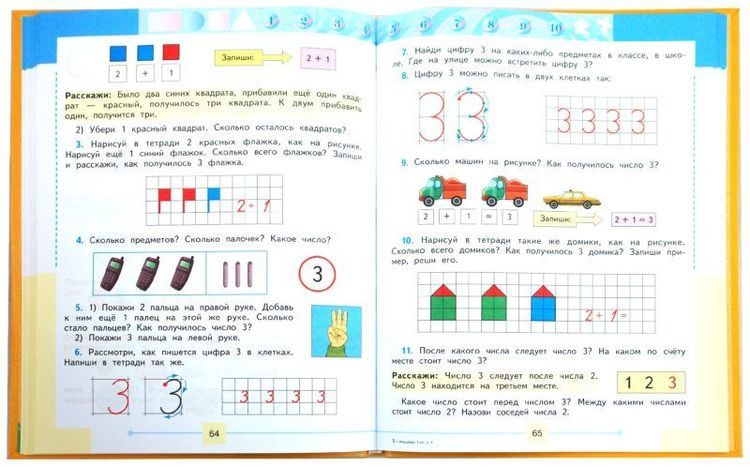 Запиши:
2 + 1
2 + 1
Расскажи: Было два синих квадрата, прибавили ещё один квад-
рат — красный, получилось три квадрата. К двум прибавить
один, получится три.
2) Убери 1 красный квадрат. Сколько осталось квадратов?
3. Нарисуй в тетради 2 красных флажка, как на рисунке.
Нарисуй ещё 1 синий флажок. Сколько всего флажков? Запиши
и расскажи, как получилось 3 флажка.
2 + 1
4. Сколько предметов? Сколько палочек? Какое число?
3
5. 1) Покажи 2 пальца на правой руке. Добавь
к ним ещё 1 палец на этой же руке. Сколько
стало пальцев? Как получилось число 3?
2) Покажи 3 пальца на левой руке.
6. Рассмотри, как пишется цифра 3 в клетках.
Напиши в тетради так же.
3 3
3 3 3 3 3
64
1 2 3 4 5 6 7 8 9 10
7. Найди цифру 3 на каких-либо предметах в классе, в шко-
ле. Где на улице можно встретить цифру 3?
8. Цифру 3 можно писать в двух клетках так:
3 3
3 3 3 3
9. Сколько машин на рисунке? Как получилось число 3?
2 + 1 = 3
Запиши:
2 + 1 = 3
10. Нарисуй в тетради такие же домики, как на рисунке.
Сколько всего домиков? Как получилось 3 домика? Запиши при-
мер, реши его.
2 + 1 =
11. После какого числа следует число 3? На каком по счёту
месте стоит число 3?
Расскажи: Число 3 следует после числа 2.
Число 3 находится на третьем месте.
1 2 3
Какое число стоит перед числом 3? Между какими числами
стоит число 2? Назови соседей числа 2.
65